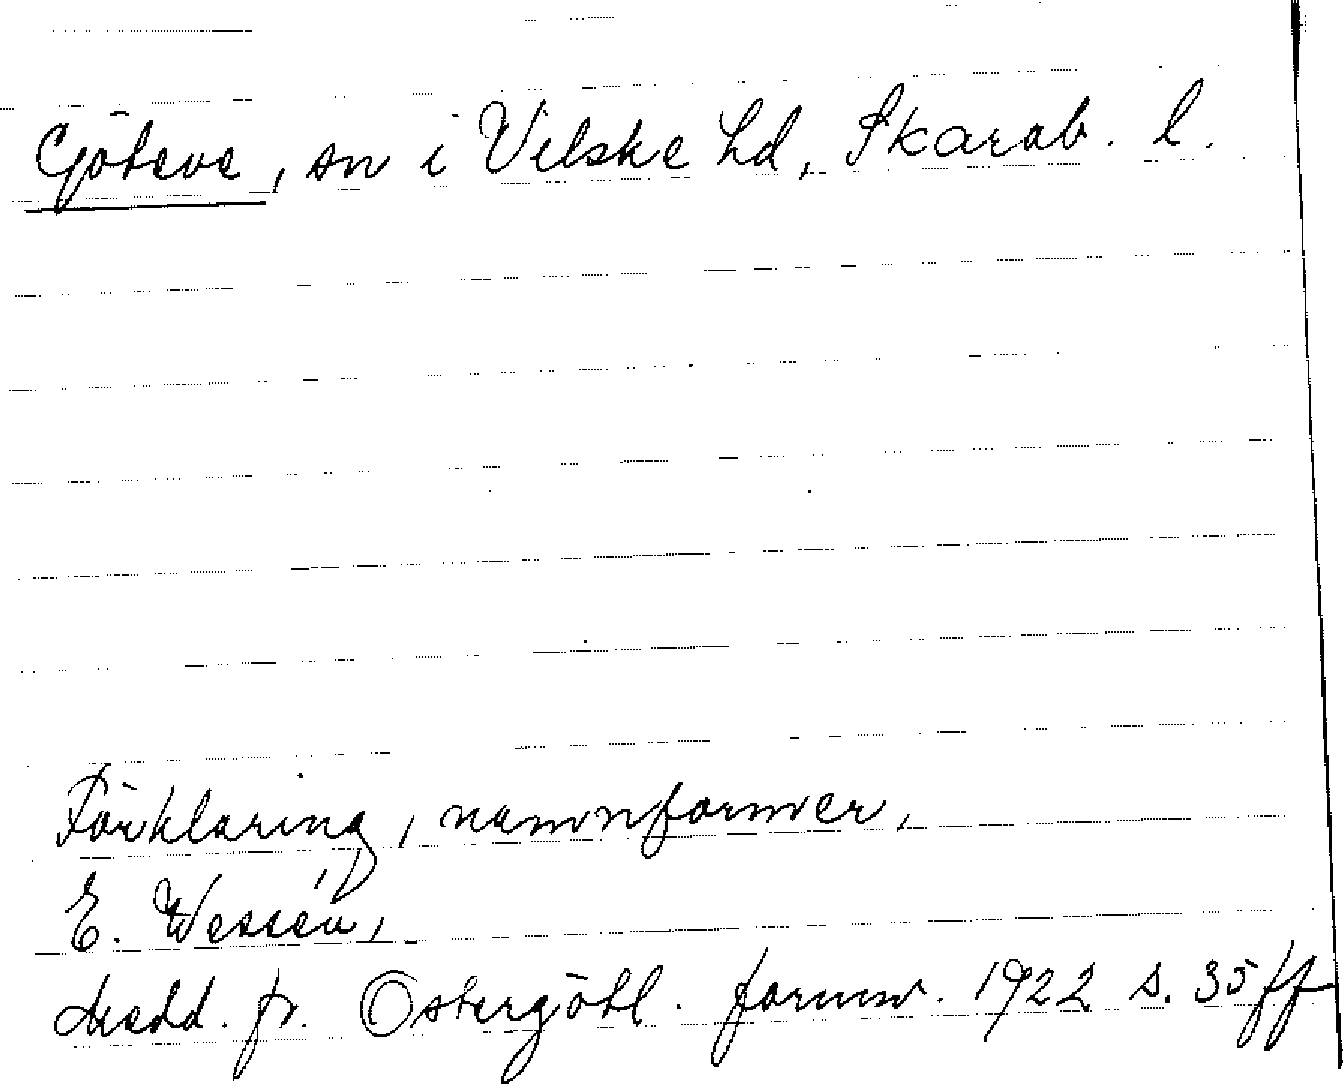 Göteve, sn i Vilske hd, Skarab. l.
Förklaring, namnformer,
E. Wessén,
Medd. fr. Östergötl. fornm. 1922 s. 35 ff